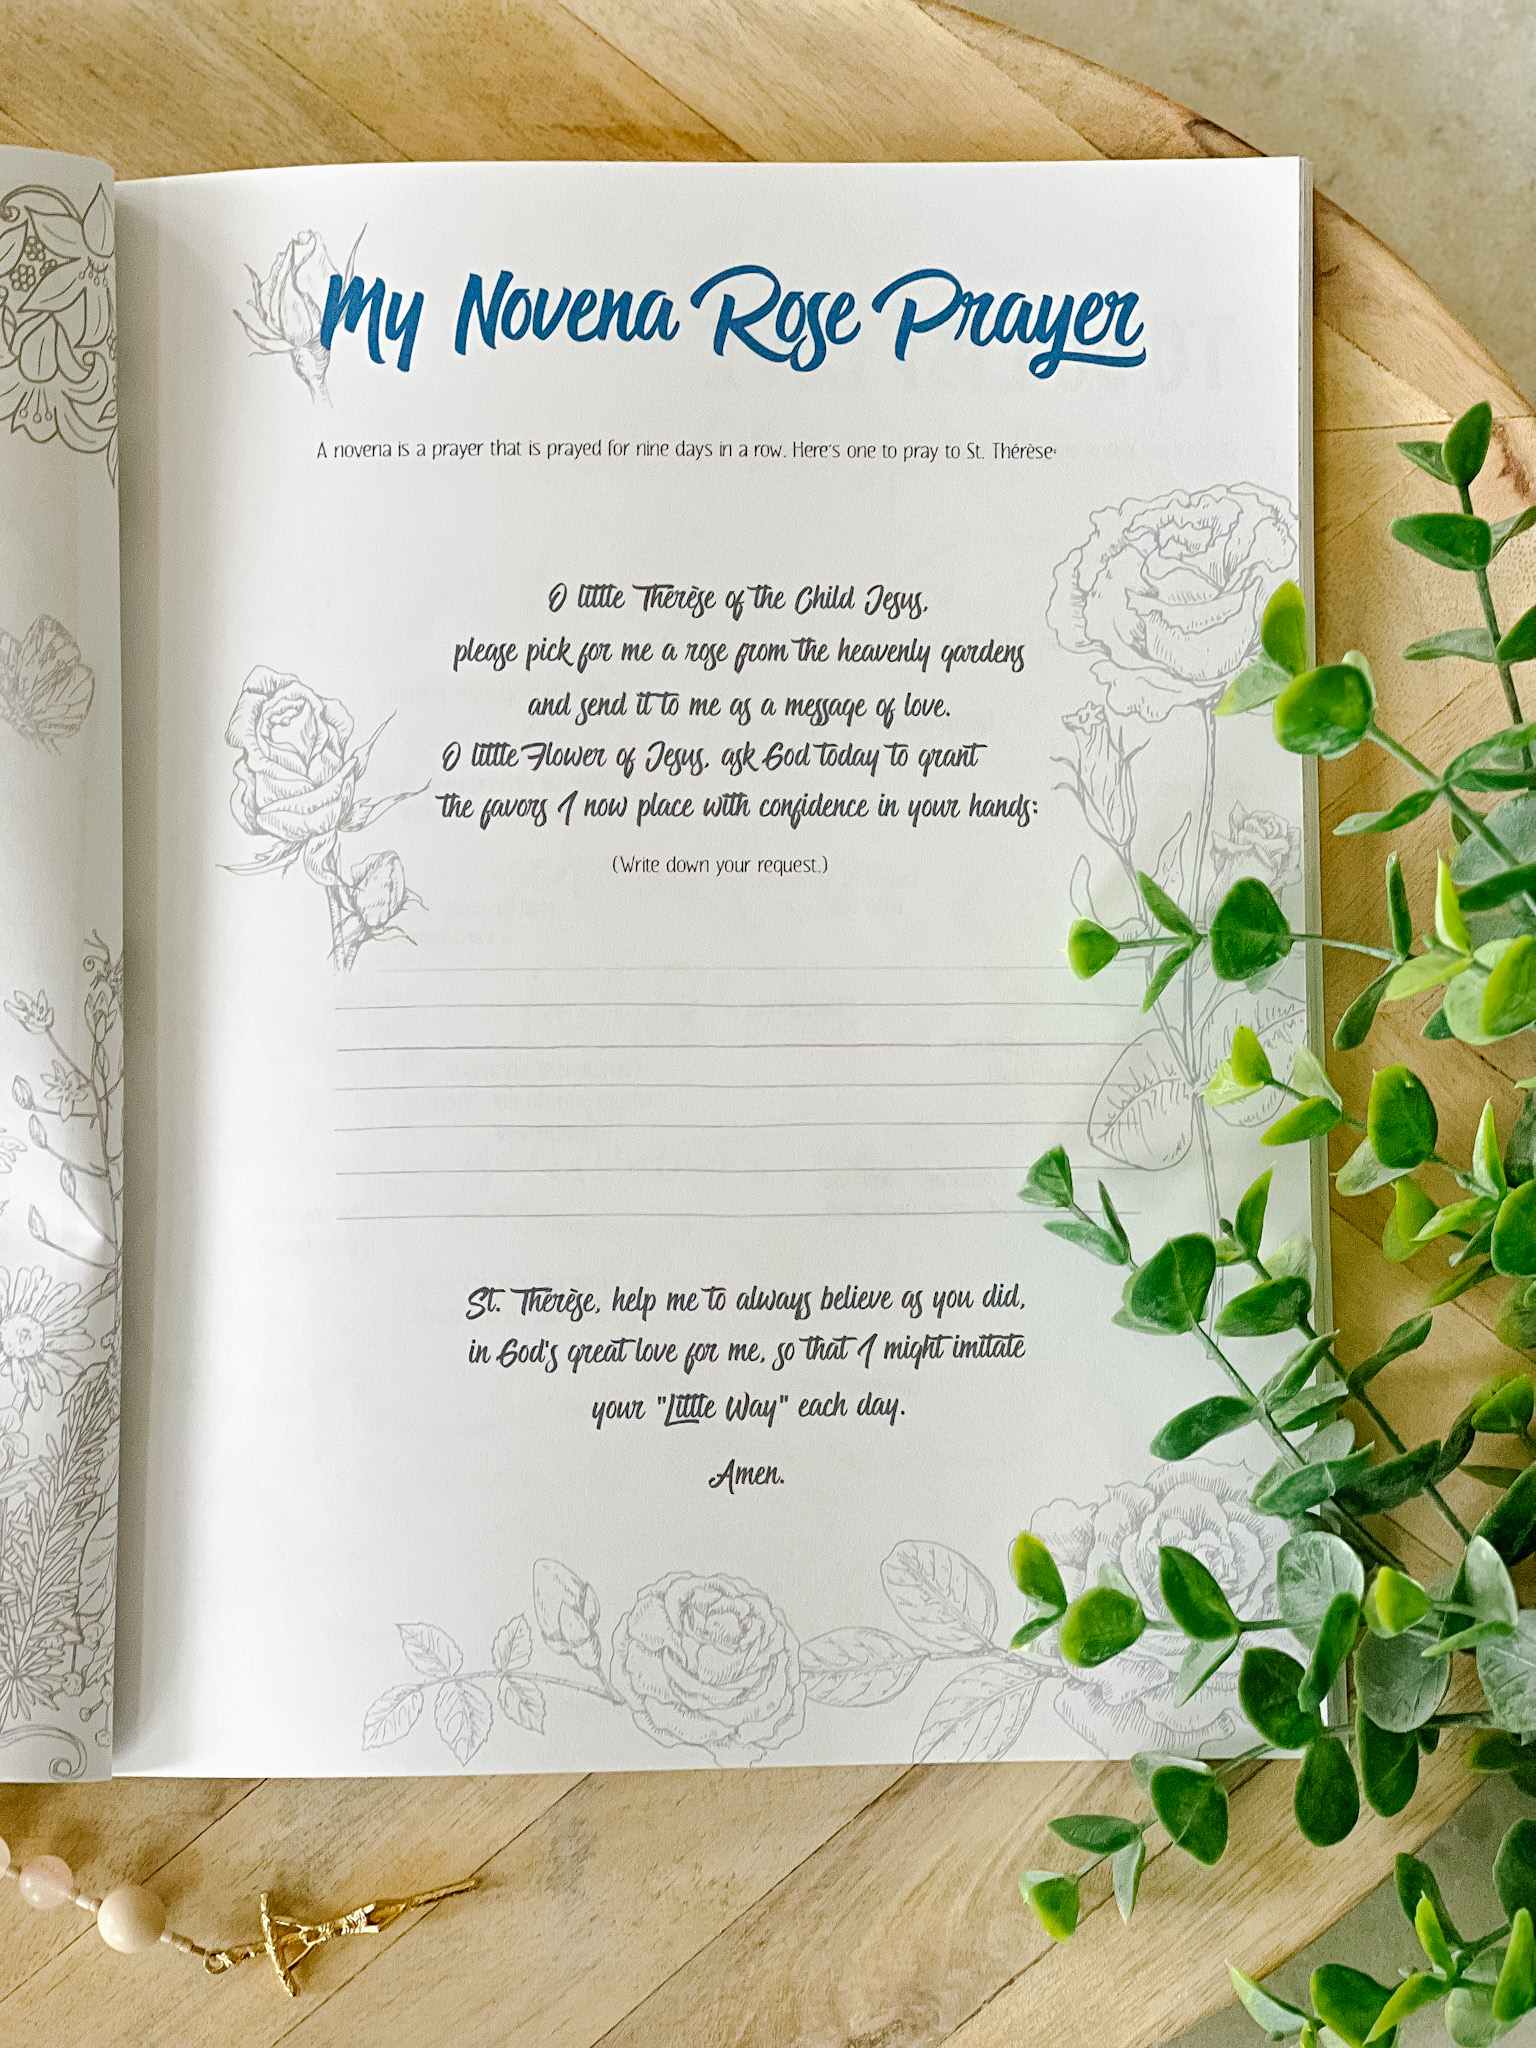 My Novena Rose Prayer
A novena is a prayer that is prayed for nine days in a row. Here's one to pray to St. Thérèse:
O little Thérèse of the Child Jesus,
please pick for me a rose from the heavenly gardens
and send it to me as a message of love.
O little Flower of Jesus, ask God today to grant
the favors I now place with confidence in your hands:
(Write down your request.)
St. Thérèse, help me to always believe as you did,
in God's great love for me, so that I might imitate
your "Little Way" each day.
Amen.